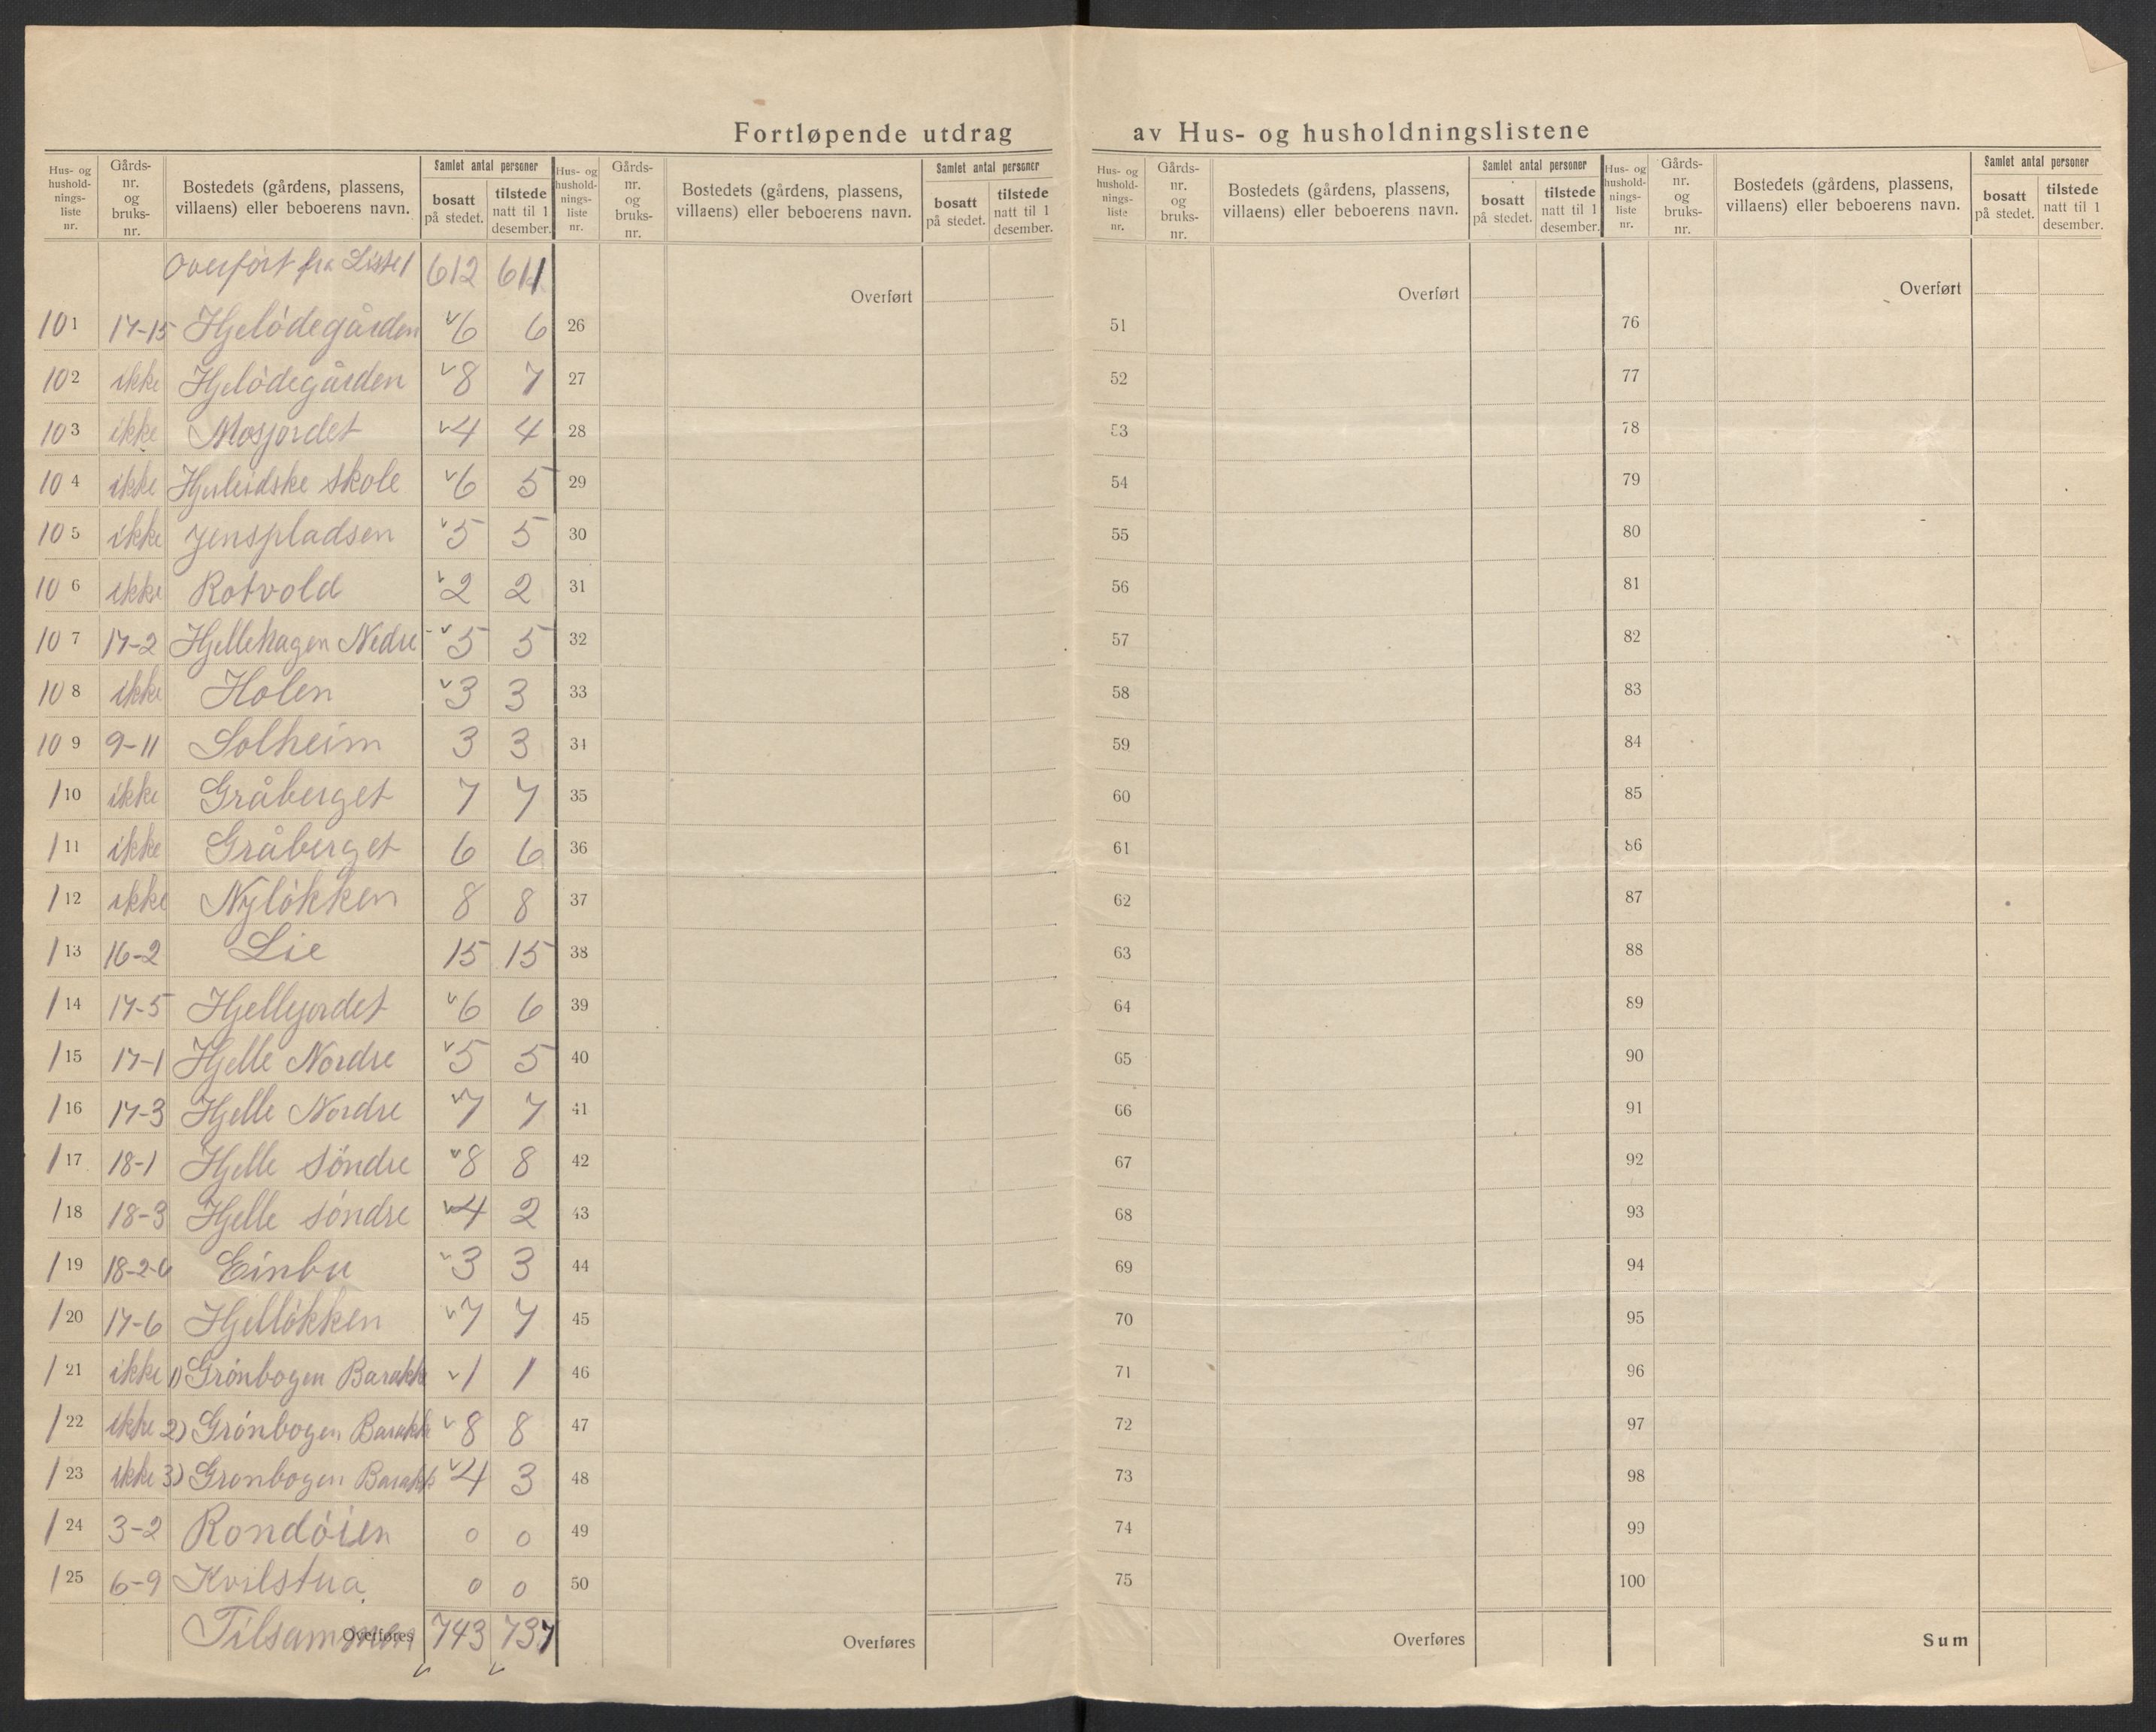 Fortløpende utdrag av Hus- og husholdningslistene
Hus- og hushold- nings- liste nr. | Gårds- nr. og bruks- nr. | Bostedets (gårdens, plassens, villaens) eller beboerens navn. | Samlet antal personer | bosatt på stedet. | tilstede natt til 1 desember.
Hus- og hushold- nings- liste nr. | Gårds- nr. og bruks- nr. | Bostedets (gårdens, plassens, villaens) eller beboerens navn. | Samlet antal personer | bosatt på stedet. | tilstede natt til 1 desember.
Hus- og hushold- nings- liste nr. | Gårds- nr. og bruks- nr. | Bostedets (gårdens, plassens, villaens) eller beboerens navn. | Samlet antal personer | bosatt på stedet. | tilstede natt til 1 desember.
Hus- og hushold- nings- liste nr. | Gårds- nr. og bruks- nr. | Bostedets (gårdens, plassens, villaens) eller beboerens navn. | Samlet antal personer | bosatt på stedet. | tilstede natt til 1 desember.
Overført fra Liste 1 612 611 Overført Overført Overført
101 17-15 Hjelödegården v6 6 26 51 76
102 ikke Hjelödegården v8 7 27 52 77
103 ikke Mosjordet v4 4 28 53 78
104 ikke Hjerleidske skole v6 5 29 54 79
105 ikke Jenspladsen v5 5 30 55 80
106 ikke Rotvold v2 2 31 56 81
107 17-2 Hjellehagen Nedre v5 5 32 57 82
108 ikke Holen v3 3 33 58 83
109 9-11 Solheim 3 3 34 59 84
110 ikke Gråberget 7 7 35 60 85
111 ikke Gråberget 6 6 36 61 86
112 ikke Nyløkken 8 8 37 62 87
113 16-2 Lie 15 15 38 63 88
114 17-5 Hjellejordet v6 6 39 64 89
115 17-1 Hjelle Nordre v5 5 40 65 90
116 17-3 Hjelle Nordre v7 7 41 66 91
117 18-1 Hjelle söndre v8 8 42 67 92
118 18-3 Hjelle söndre v4 2 43 68 93
119 18-2-6 Einbu v3 3 44 69 94
120 17-6 Hjellökken v7 7 45 70 95
121 ikke 1) Grönbogen Barakk v1 1 46 71 96
122 ikke 2) Grönbogen Barakk v8 8 47 72 97
123 ikke 3) Grønbogen Barakk v4 3 48 73 98
124 3-2 Rondöien 0 0 49 74 99
125 6-9 Kvilstua 0 0 50 75 100
Tilsammen Overføres 743 737 Overføres Overføres Sum
v v